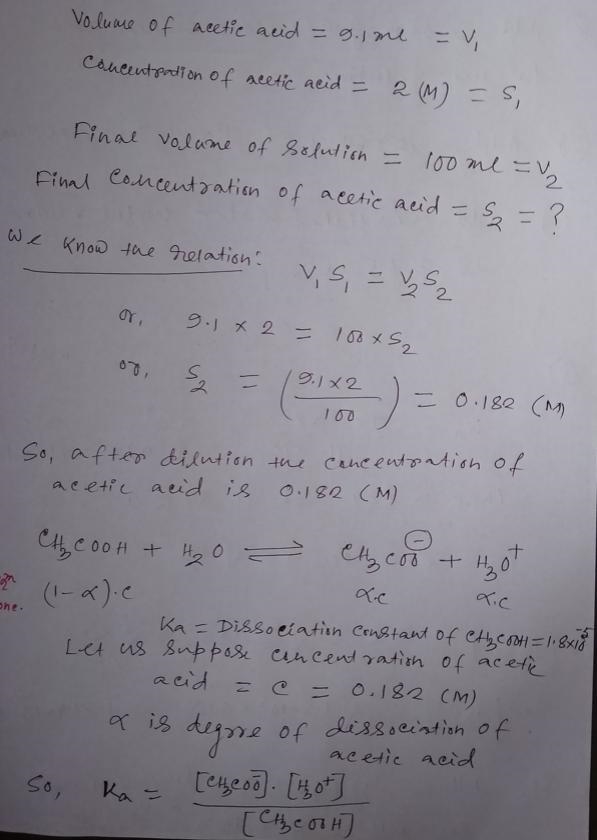 Volume of acetic acid = 9.1 ml = V₁
Concentration of acetic acid = 2 (M) = S₁
Final volume of solution = 100 ml = V₂
Final Concentration of acetic acid = S₂ = ?
We know the relation:
V₁ S₁ = V₂ S₂
or, 9.1 × 2 = 100 × S₂
or, S₂ = (9.1×2 / 100) = 0.182 (M)
So, after dilution the concentration of
acetic acid is 0.182 (M)
CH₃COOH + H₂O ⇌ CH₃COO⊖ + H₃O⁺
(1-α).c α.c α.c
Ka = Dissociation constant of CH₃COOH = 1.8×10⁻⁵
Let us suppose concentration of acetic
acid = c = 0.182 (M)
α is degree of dissociation of
acetic acid
So, Ka = [CH₃COO⁻].[H₃O⁺] / [CH₃COOH]